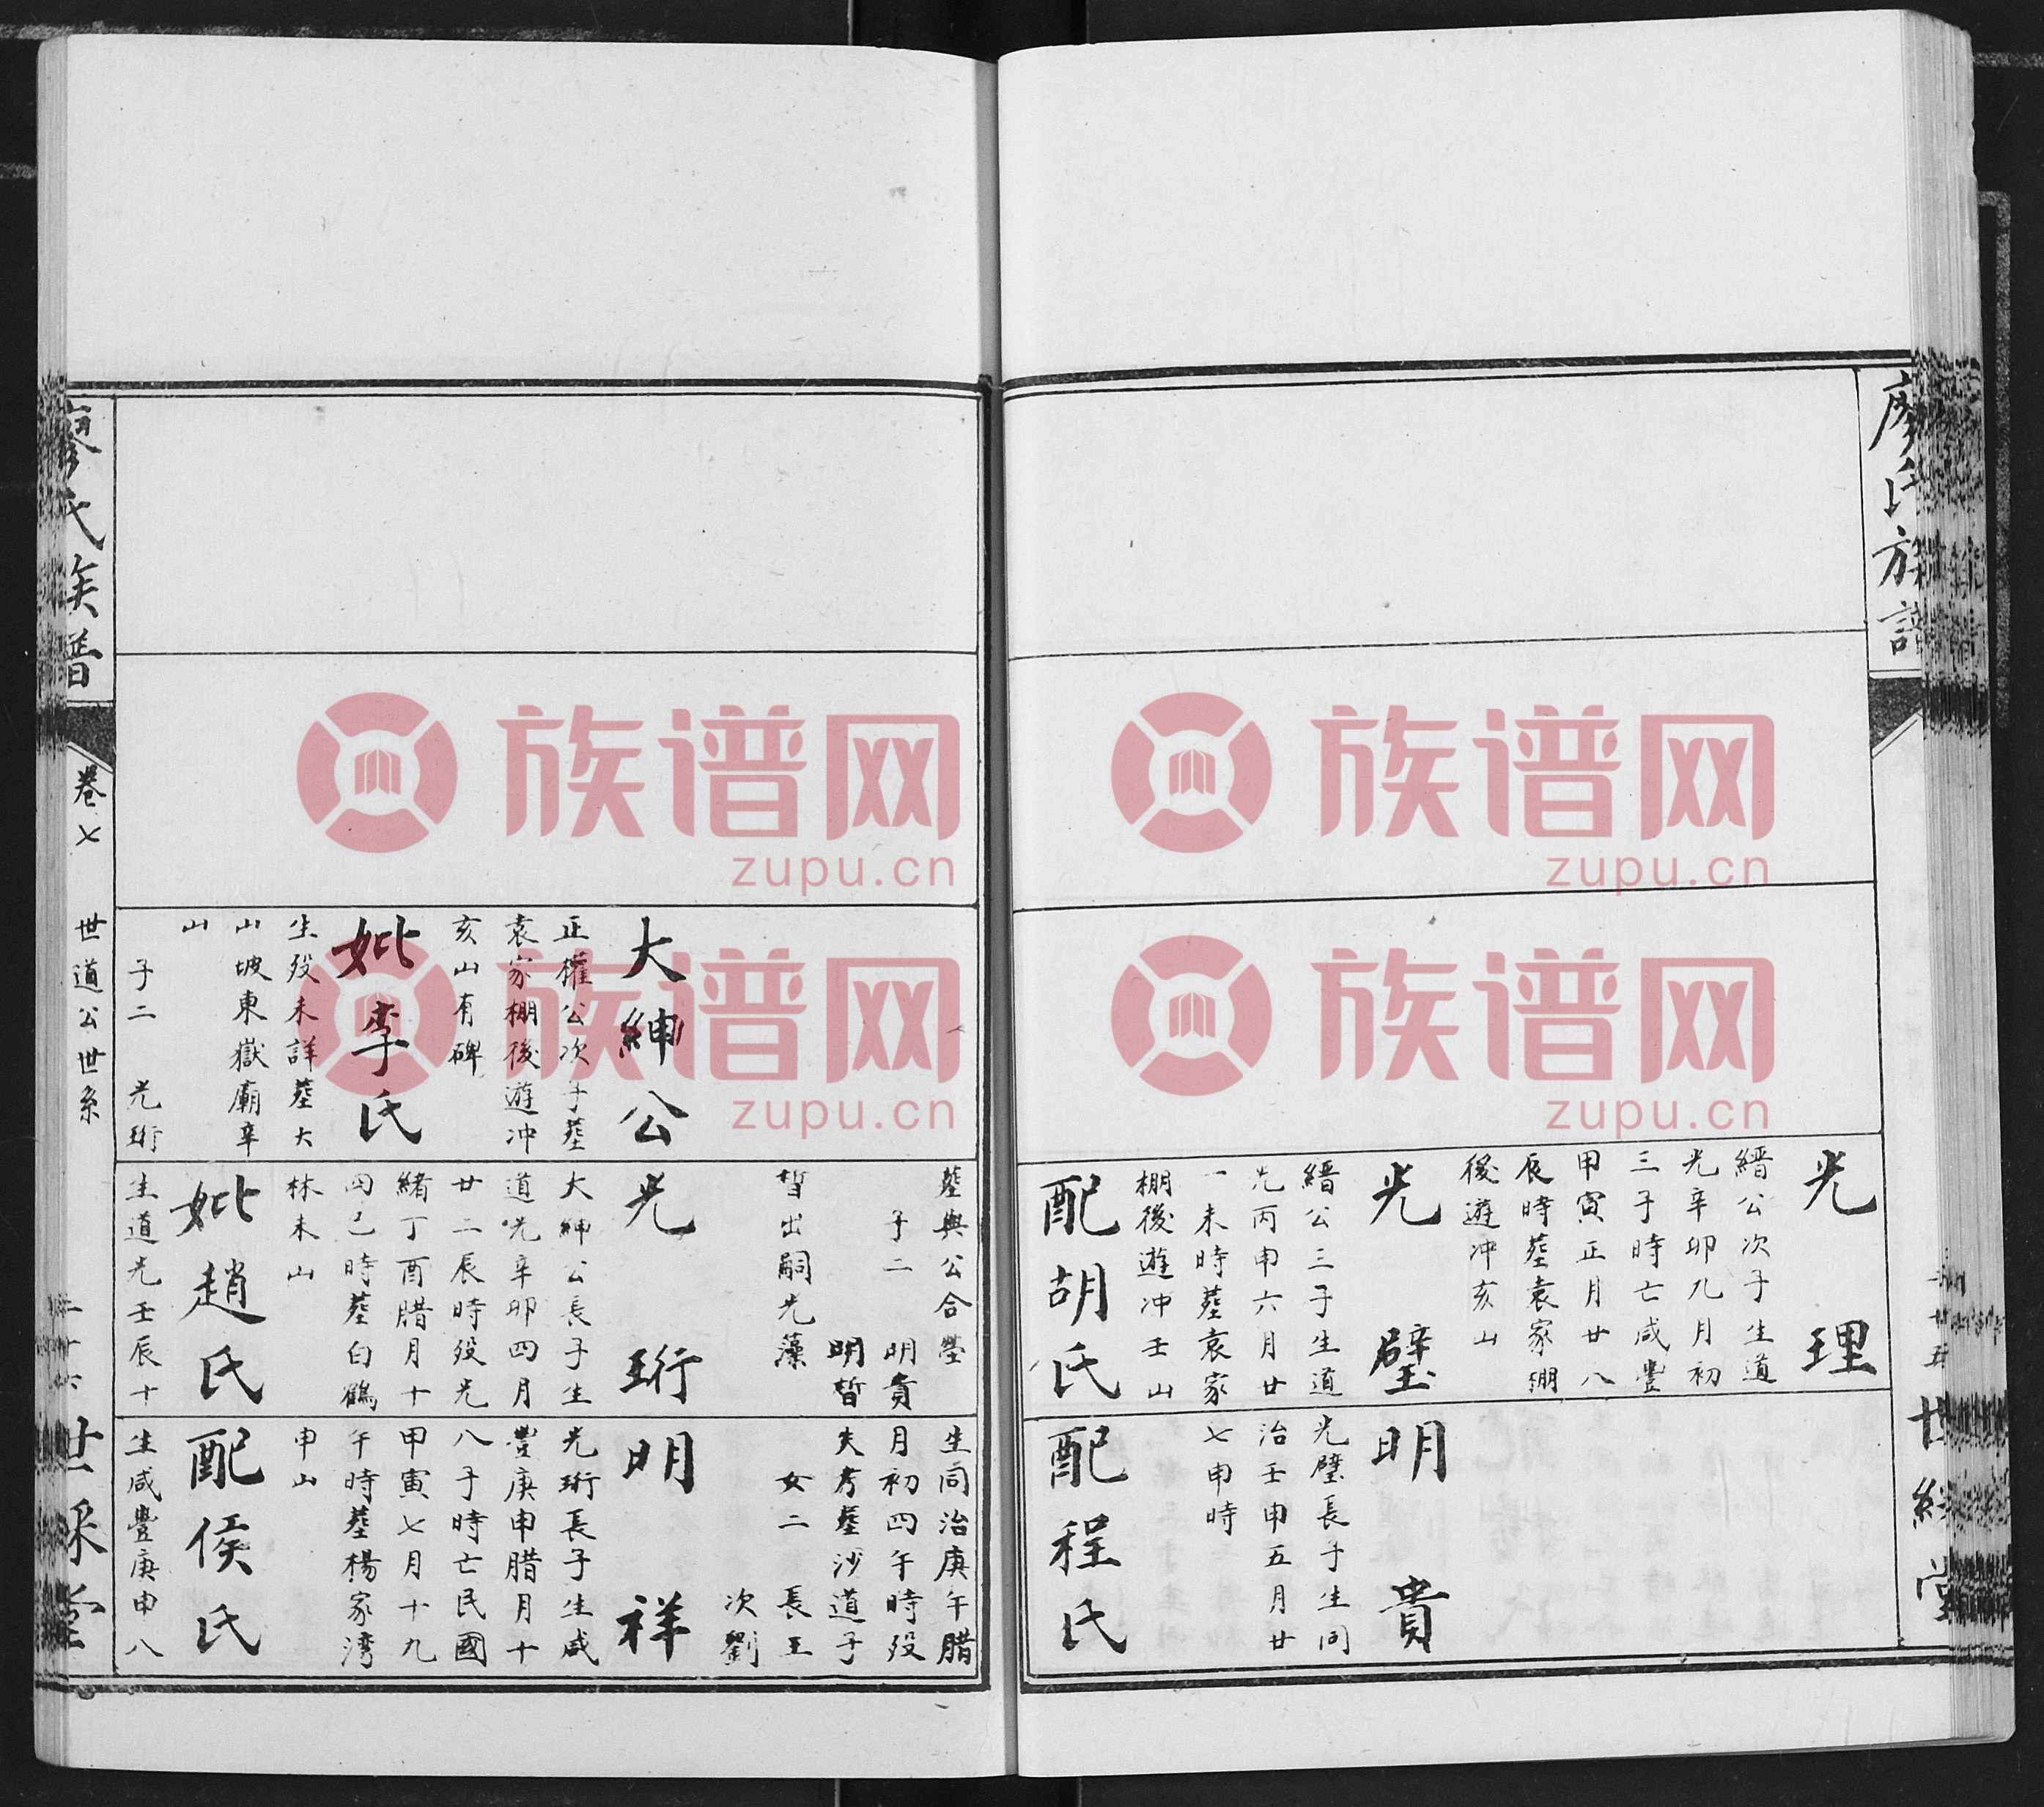 廖氏族譜
光理
縉公次子生道
光辛卯九月初
三子時亡咸豐
甲寅正月廿八
辰時塟袁家棚
後遊冲亥山
光璧
縉公三子生道
光丙申六月廿
一未時塟袁家
棚後遊冲壬山
配胡氏
明貴
光璧長子生同
治壬申五月廿
七申時
配程氏
塟與公合塋
子二 明貴
明晳
晳出嗣光藻
生同治庚午腊
月初四午時殁
失考塟沙道子
女二 長王
次劉
大紳公
正權公次子塟
袁家棚後遊冲
亥山有碑
妣李氏
生殁未詳塟大
山坡東嶽廟辛
山
子二 光珩
光珩
大紳公長子生
道光辛卯四月
廿二辰時殁光
緒丁酉腊月十
四己時塟白鶴
林未山
妣趙氏
生道光壬辰十
明祥
光珩長子生咸
豐庚申腊月十
八子時亡民國
甲寅七月十九
午時塟楊家湾
申山
配侯氏
生咸豐庚申八
廖氏族普
卷七 世道公世系
二十六
族谱网
zupu.cn
族谱网
zupu.cn
族谱网
zupu.cn
族谱网
zupu.cn